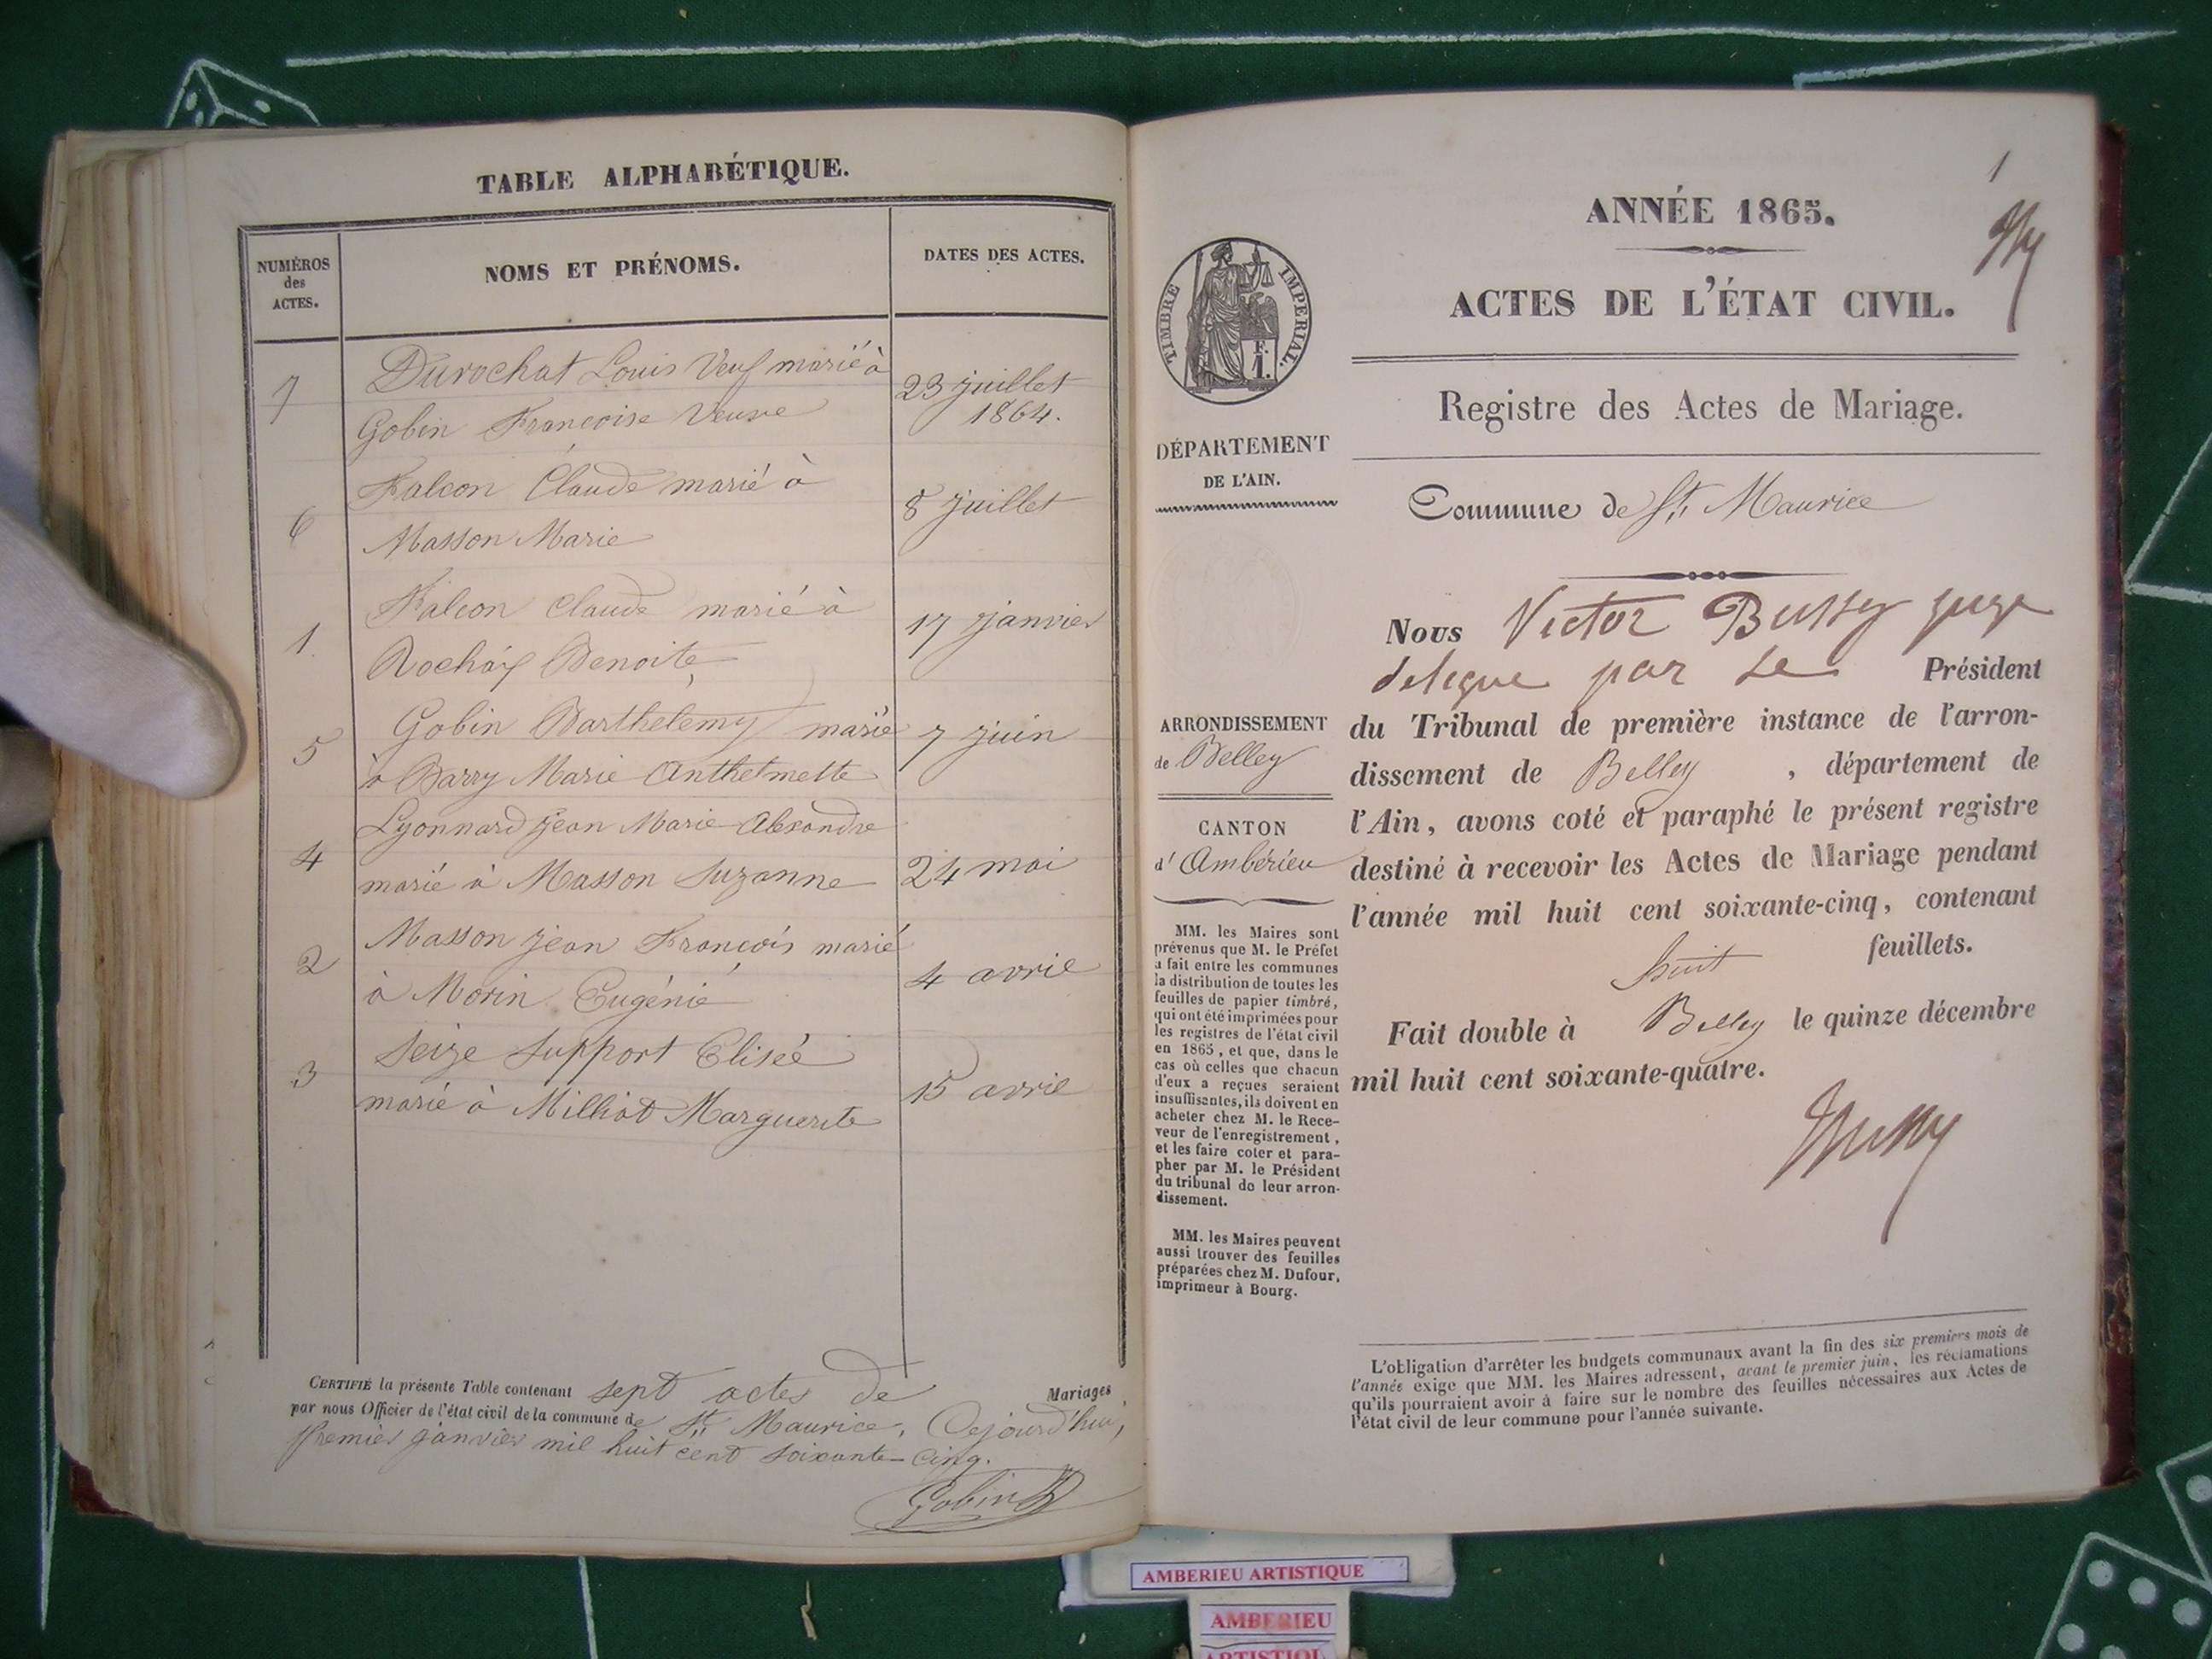 TABLE ALPHABÉTIQUE.
NUMÉROS
des
ACTES.
NOMS ET PRÉNOMS.
DATES DES ACTES.
7
Durochat Louis Veuf marié à
Gobin Françoise Veuve
23 juillet
1864.
6
Falcon Claude marié à
Masson Marie
8 juillet
1.
Falcon Claude marié à
Benoite
17 janvier
5
Gobin Barthelemy marié
à Barry Marie Anthelmette
7 juin
4
Lyonnard jean Marie Alexandre
marié à Masson Suzanne
24 mai
2
Masson jean François marié
à Morin Eugénie
4 avril
3
Seize Support Elisée
marié à Milliat Marguerite
15 avril
CERTIFIÉ la présente Table contenant sept actes de Mariages
par nous Officier de l'état civil de la commune de St. Maurice, Cejourd'hui,
Premier janvier mil huit cent soixante-cinq.
Gobin
1
ANNÉE 1865.
ACTES DE L'ÉTAT CIVIL.
Registre des Actes de Mariage.
Commune de St. Maurice
TIMBRE IMPERIAL.
F.
1.
DÉPARTEMENT
DE L'AIN.
ARRONDISSEMENT
de Belley
CANTON
d' Ambérieu
MM. les Maires sont
prévenus que M. le Préfet
a fait entre les communes
la distribution de toutes les
feuilles de papier timbré,
qui ont été imprimées pour
les registres de l'état civil
en 1865, et que, dans le
cas où celles que chacun
d'eux a reçues seraient
insuffisantes, ils doivent en
acheter chez M. le Rece-
veur de l'enregistrement,
et les faire coter et para-
pher par M. le Président
du tribunal de leur arron-
dissement.
MM. les Maires peuvent
aussi trouver des feuilles
préparées chez M. Dufour,
imprimeur à Bourg.
Nous Victor Bussy juge
delegue par Le Président
du Tribunal de première instance de l'arron-
dissement de Belley , département de
l'Ain, avons coté et paraphé le présent registre
destiné à recevoir les Actes de Mariage pendant
l'année mil huit cent soixante-cinq, contenant
huit feuillets.
Fait double à Belley le quinze décembre
mil huit cent soixante-quatre.
Bussy
L'obligation d'arrêter les budgets communaux avant la fin des six premiers mois de
l'année exige que MM. les Maires adressent, avant le premier juin, les réclamations
qu'ils pourraient avoir à faire sur le nombre des feuilles nécessaires aux Actes de
l'état civil de leur commune pour l'année suivante.
AMBERIEU ARTISTIQUE
AMBERIEU